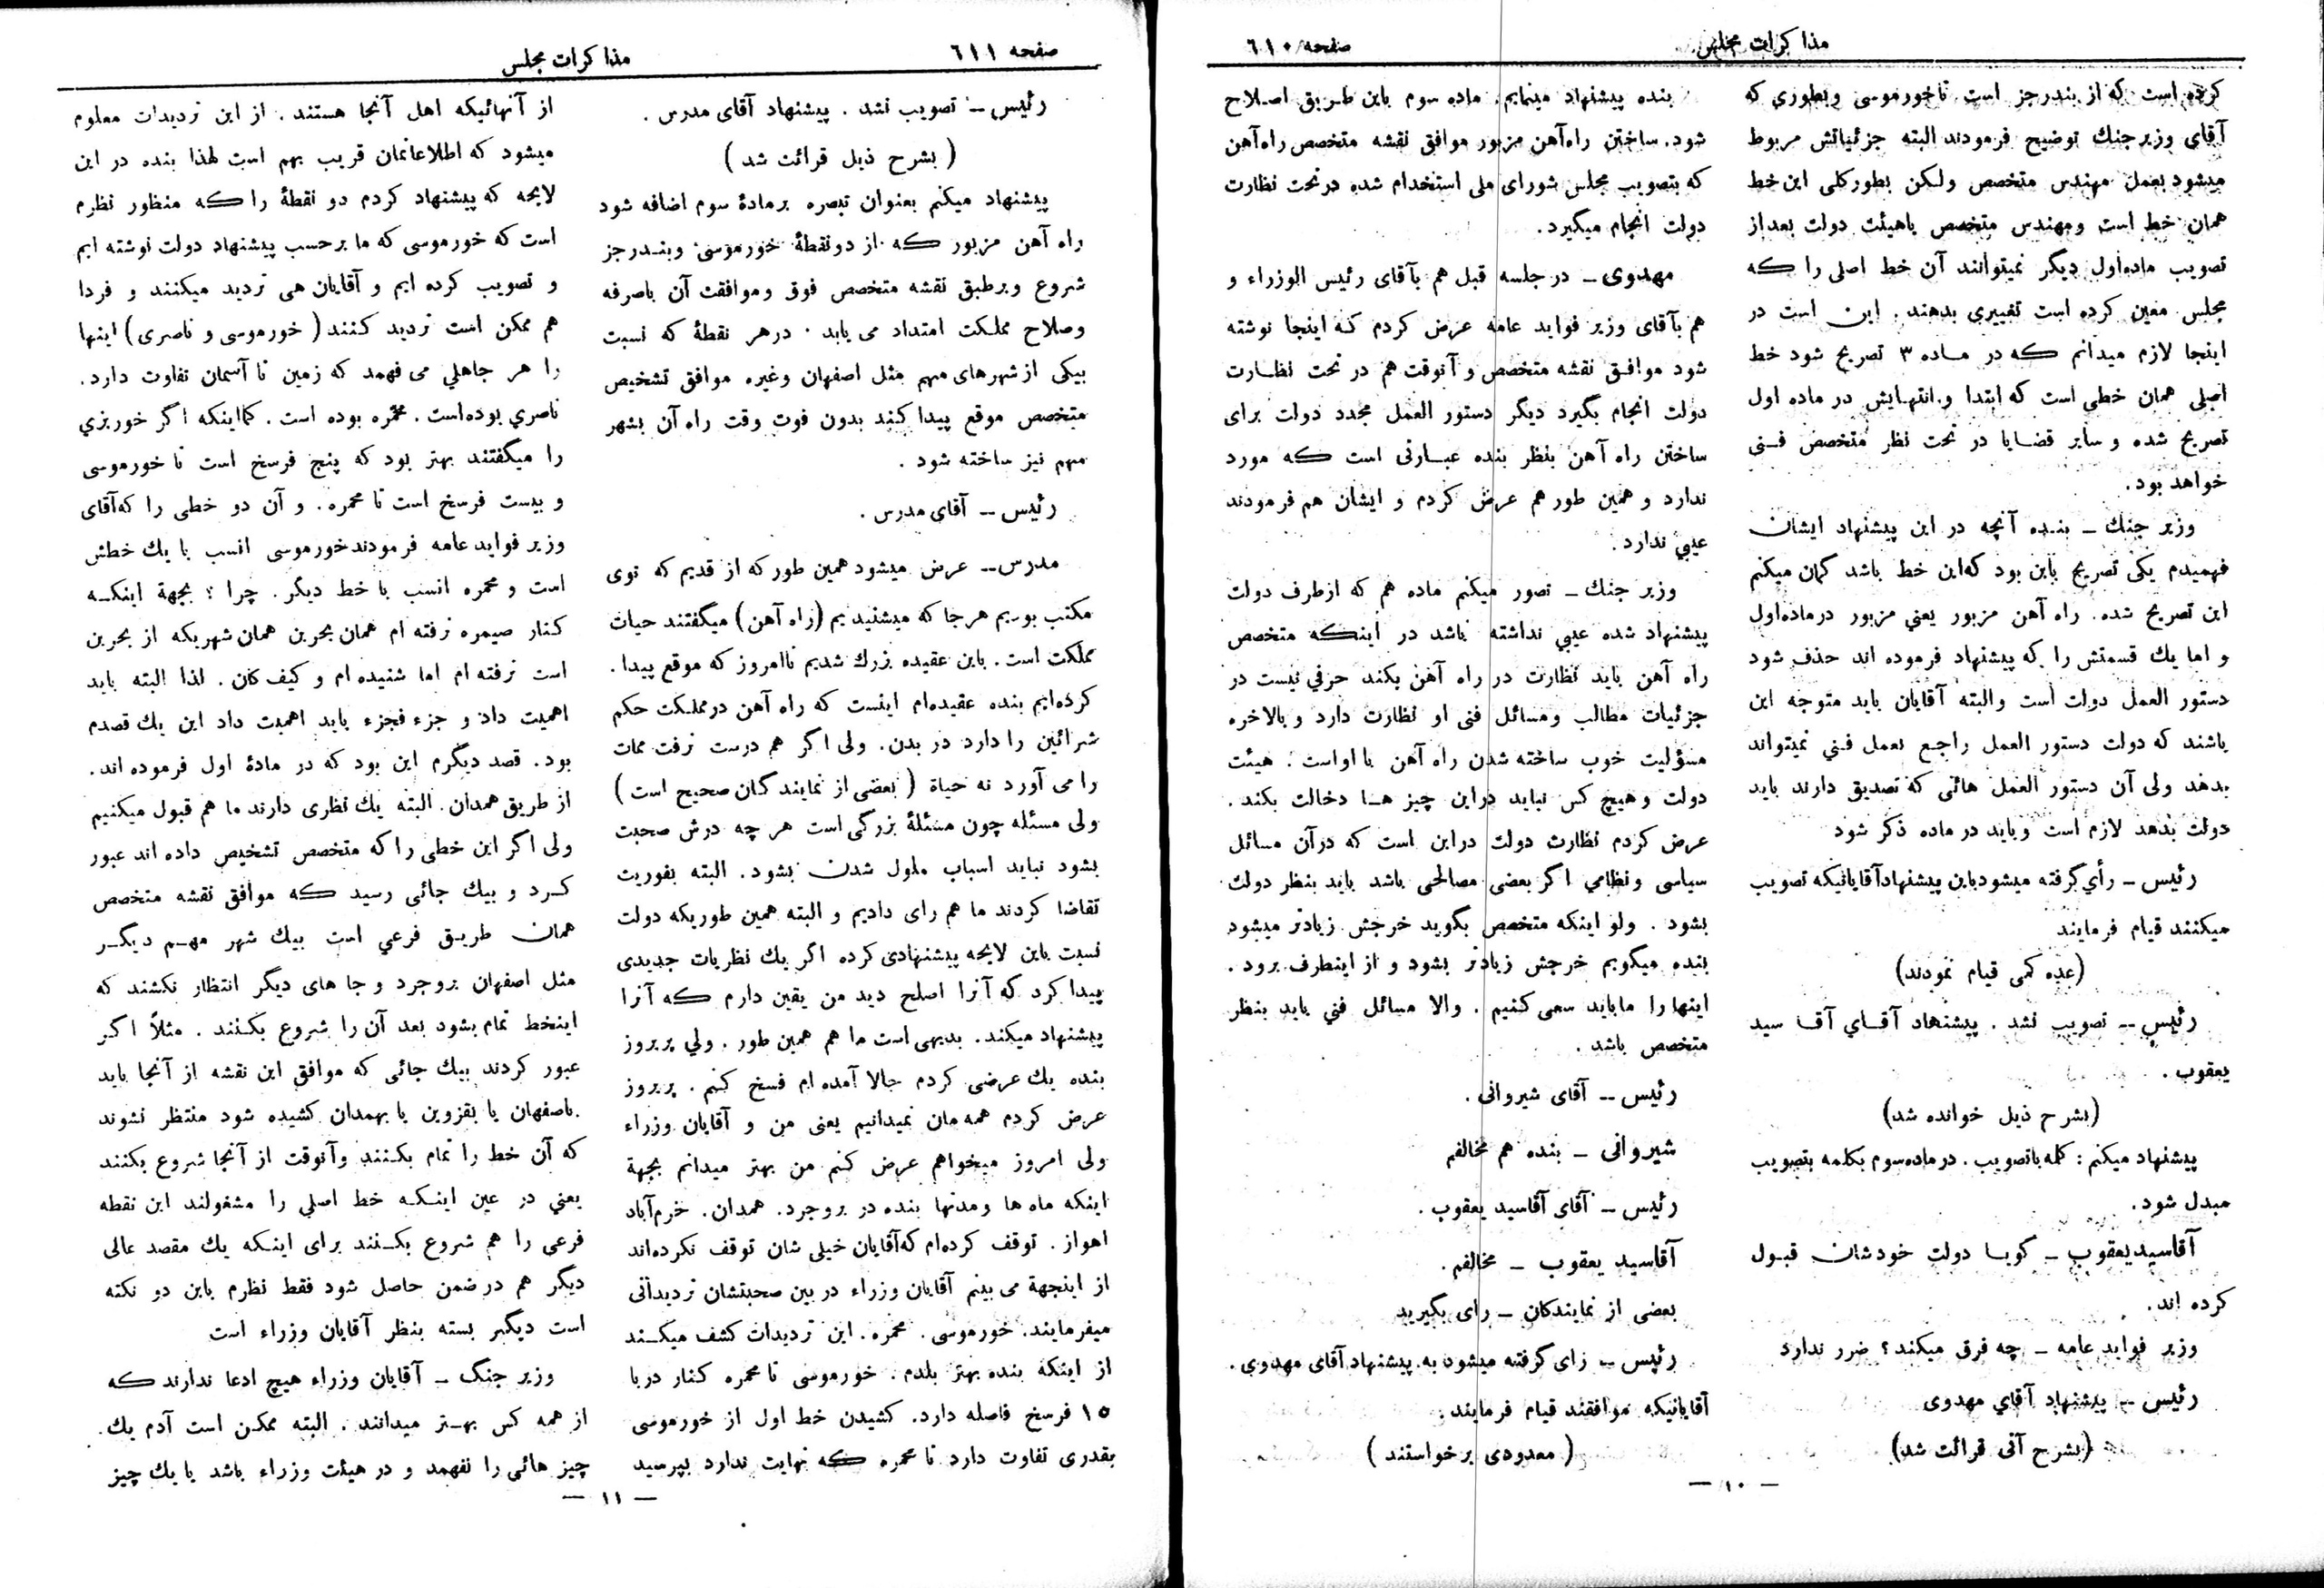 مذاکرات مجلس
صفحه ٦١٠
کرده است که از بندرجز است تا خورموسی وبطوری که
آقای وزیر جنك توضیح فرمودند البته جزئیاتش مربوط
میشود بعمل مهندس متخصص ولکن بطورکلی این خط
همان خط است ومهندس متخصص باهیئت دولت بعد از
تصویب ماده‌اول دیگر نمیتوانند آن خط اصلی را که
مجلس معین کرده است تغییری بدهند . این است در
اینجا لازم میدانم که در ماده ۳ تصریح شود خط
اصلی همان خطی است که ابتدا و انتهایش در ماده اول
تصریح شده و سایر قضایا در تحت نظر متخصص فنی
خواهد بود .
وزیر جنك ـ بنده آنچه در این پیشنهاد ایشان
فهمیدم یکی تصریح باین بود که‌این خط باشد گمان میکنم
این تصریح شده . راه آهن مزبور یعنی مزبور در ماده‌اول
و اما یك قسمتش را که پیشنهاد فرموده اند حذف شود
دستور العمل دولت است والبته آقایان باید متوجه این
باشند که دولت دستور العمل راجع بعمل فنی نمیتواند
بدهد ولی آن دستور العمل هائی که تصدیق دارند باید
دولت بدهد لازم است وباید در ماده ذکر شود
رئیس ـ رأی گرفته میشود باین پیشنهاد آقایانیکه تصویب
میکنند قیام فرمایند
(عده کمی قیام نمودند)
رئیس ـ تصویب نشد . پیشنهاد آقـای آقـا سید
یعقوب .
(بشرح ذیل خوانده شد)
پیشنهاد میکنم : کلمه باتصویب . در ماده سوم بکلمه بتصویب
مبدل شود .
آقاسید یعقوب ـ گویـا دولت خودشان قبـول
کرده اند .
وزیر فواید عامه ـ چه فرق میکند ؟ ضرر ندارد
رئیس ـ پیشنهاد آقای مهدوی
(بشرح آتی قرائت شد)
بنده پیشنهاد مینمایم . ماده سوم باین طریق اصلاح
شود . ساختن راه‌آهن مزبور موافق نقشه متخصص راه‌آهن
که بتصویب مجلس شورای ملی استخدام شده درتحت نظارت
دولت انجام میگیرد .
مهدوی ـ در جلسه قبل هم بآقای رئیس الوزراء و
هم بآقای وزیر فواید عامه عرض کردم که اینجا نوشته
شود موافق نقشه متخصص و آنوقت هم در تحت نظارت
دولت انجام بگیرد دیگر دستور العمل مجدد دولت برای
ساختن راه آهن بنظر بنده عبـارتی است که مورد
ندارد و همین طور هم عرض کردم و ایشان هم فرمودند
عیبی ندارد .
وزیر جنك ـ تصور میکنم ماده هم که ازطرف دولت
پیشنهاد شده عیبی نداشته باشد در اینکه متخصص
راه آهن باید نظارت در راه آهن بکند حرفی نیست در
جزئیات مطالب ومسائل فنی او نظارت دارد و بالاخره
مسؤلیت خوب ساخته شدن راه آهن با اواست . هیئت
دولت وهیچ کس نباید دراین چیز هـا دخالت بکند .
عرض کردم نظارت دولت دراین است که درآن مسائل
سیاسی ونظامی اگر بعضی مصالحی باشد باید بنظر دولت
بشود . ولو اینکه متخصص بگوید خرجش زیادتر میشود
بنده میگویم خرجش زیادتر بشود و از اینطرف برود .
اینها را ما باید سعی کنیم . والا مسائل فنی باید بنظر
متخصص باشد .
رئیس ـ آقای شیروانی .
شیروانی ـ بنده هم مخالفم
رئیس ـ آقای آقاسید یعقوب .
آقاسید یعقوب ـ مخالفم .
بعضی از نمایندگان ـ رای بگیرید
رئیس ـ رای گرفته میشود به پیشنهاد آقای مهدوی .
آقایانیکه موافقند قیام فرمایند .
( معدودی برخواستند )
— ١٠ —
صفحه ٦١١
مذاکرات مجلس
رئیس ـ تصویب نشد . پیشنهاد آقای مدرس .
( بشرح ذیل قرائت شد )
پیشنهاد میکنم بعنوان تبصره برمادهٔ سوم اضافه شود
راه آهن مزبور که از دونقطهٔ خورموسی وبندرجز
شروع وبرطبق نقشه متخصص فوق وموافقت آن باصرفه
وصلاح مملکت امتداد می یابد . درهر نقطهٔ که نسبت
بیکی از شهرهای مهم مثل اصفهان وغیره موافق تشخیص
متخصص موقع پیدا کند بدون فوت وقت راه آن بشهر
مهم نیز ساخته شود .
رئیس ـ آقای مدرس .
مدرس ـ عرض میشود همین طور که از قدیم که توی
مکتب بودیم هرجا که میشنیدیم (راه آهن) میگفتند حیات
مملکت است . باین عقیده بزرك شدیم تاامروز که موقع پیدا .
کرده‌ایم بنده عقیده‌ام اینست که راه آهن درمملکت حکم
شرائین را دارد در بدن . ولی اگر هم درست نرفت ممات
را می آورد نه حیاة ( بعضی از نمایندگان صحیح است )
ولی مسئله چون مسئلهٔ بزرگی است هر چه درش صحبت
بشود نباید اسباب ملول شدن بشود . البته بفوریت
تقاضا کردند ما هم رای دادیم و البته همین طوریکه دولت
نسبت باین لایحه پیشنهادی کرده اگر یك نظریات جدیدی
پیدا کرد که آنرا اصلح دید من یقین دارم که آنرا
پیشنهاد میکند . بدیهی است ما هم همین طور . ولی پریروز
بنده یك عرضی کردم حالا آمده ام فسخ کنم . پریروز
عرض کردم همه‌مان نمیدانیم یعنی من و آقایان وزراء
ولی امروز میخواهم عرض کنم من بهتر میدانم بجهة
اینکه ماه ها ومدتها بنده در بروجرد . همدان . خرم‌آباد
اهواز . توقف کرده‌ام که‌آقایان خیلی شان توقف نکرده‌اند
از اینجهة می بینم آقایان وزراء در بین صحبتشان تردیداتی
میفرمایند . خورموسی . محمره . این تردیدات کشف میکـند
از اینکه بنده بهتر بلدم . خورموسی تا محمره کنار دریا
١٥ فرسخ فاصله دارد . کشیدن خط اول از خورموسی
بقدری تفاوت دارد تا محمره که نهایت ندارد بپرسید
از آنهائیکه اهل آنجا هستند . از این تردیدات معلوم
میشود که اطلاعاتمان قریب بهم است لهذا بنده در این
لایحه که پیشنهاد کردم دو نقطهٔ را که منظور نظرم
است که خورموسی که ما برحسب پیشنهاد دولت نوشته ایم
و تصویب کرده ایم و آقایان هی تردید میکنند و فردا
هم ممکن است تردید کنند ( خورموسی و ناصری ) اینها
را هر جاهلی می فهمد که زمین تا آسمان تفاوت دارد .
ناصری بوده‌است . محمره بوده است . کمااینکه اگر خوربزی
را میگفتند بهتر بود که پنج فرسخ است تا خورموسی
و بیست فرسخ است تا محمره . و آن دو خطی را که‌آقای
وزیر فواید عامه فرمودند خورموسی انسب با یك خطش
است و محمره انسب با خط دیگر . چرا ؟ بجهة اینکـه
کنار صیمره نرفته ام همان بحرین همان شهریکه از بحرین
است نرفته ام اما شنیده ام و کیف کان . لذا البته باید
اهمیت داد و جزء فجزء باید اهمیت داد این یك قصدم
بود . قصد دیگرم این بود که در مادهٔ اول فرموده اند .
از طریق همدان . البته یك نظری دارند ما هم قبول میکنیم
ولی اگر این خطی را که متخصص تشخیص داده اند عبور
کرد و بیك جائی رسید که موافق نقشه متخصص
همان طریق فرعی است بیك شهر مهـم دیگـر
مثل اصفهان بروجرد و جا های دیگر انتظار نکشند که
اینخط تمام بشود بعد آن را شروع بکنند . مثلاً اگر
عبور کردند بیك جائی که موافق این نقشه از آنجا باید
باصفهان یا بقزوین یا بهمدان کشیده شود منتظر نشوند
که آن خط را تمام بکـنند وآنوقت از آنجا شروع بکنند
یعنی در عین اینـکـه خط اصلی را مشغولند این نقطه
فرعی را هم شروع بکـنند برای اینکه یك مقصد عالی
دیگر هم در ضمن حاصل شود فقط نظرم باین دو نکته
است دیگر بسته بنظر آقایان وزراء است
وزیر جنگ ـ آقایان وزراء هیچ ادعا ندارند که
از همه کس بهـتر میدانند . البته ممکن است آدم یك
چیز هائی را نفهمد و در هیئت وزراء باشد یا یك چیز
— ١١ —